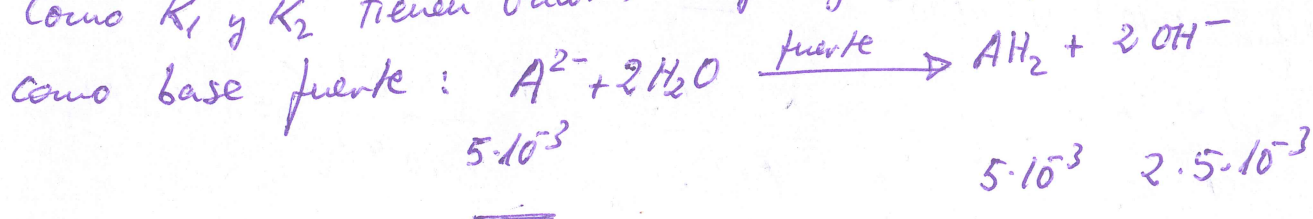 Como K₁ y K₂ tienen
como base fuerte : A²⁻ + 2H₂O fuerte → AH₂ + 2OH⁻
5·10⁻³ 5·10⁻³ 2·5·10⁻³